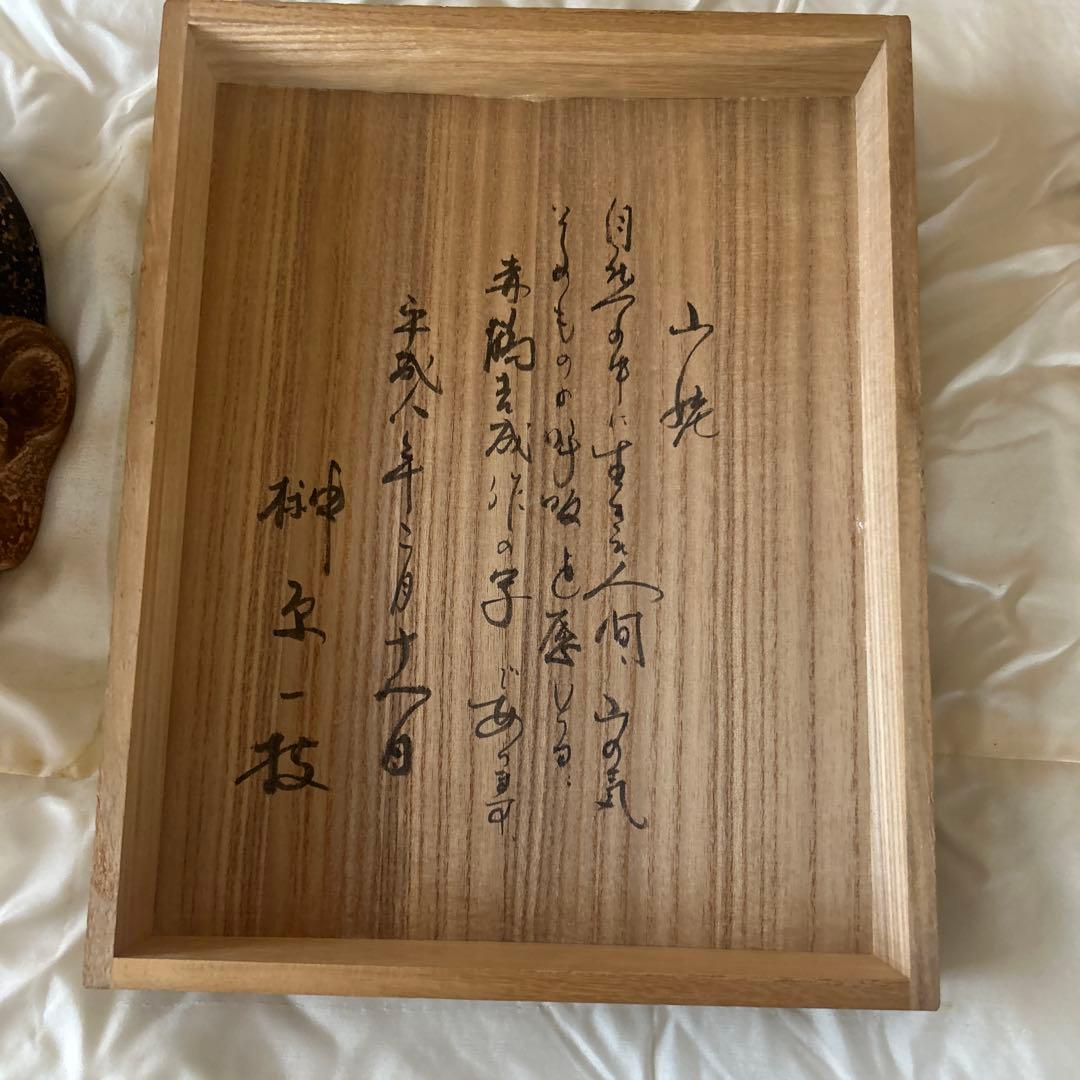 山姥
自然の中に生きる人間、山の気
そのものの呼吸を感じる、
赤鶴吉成作の写であります
平成八年三月十八日
榊原一枝